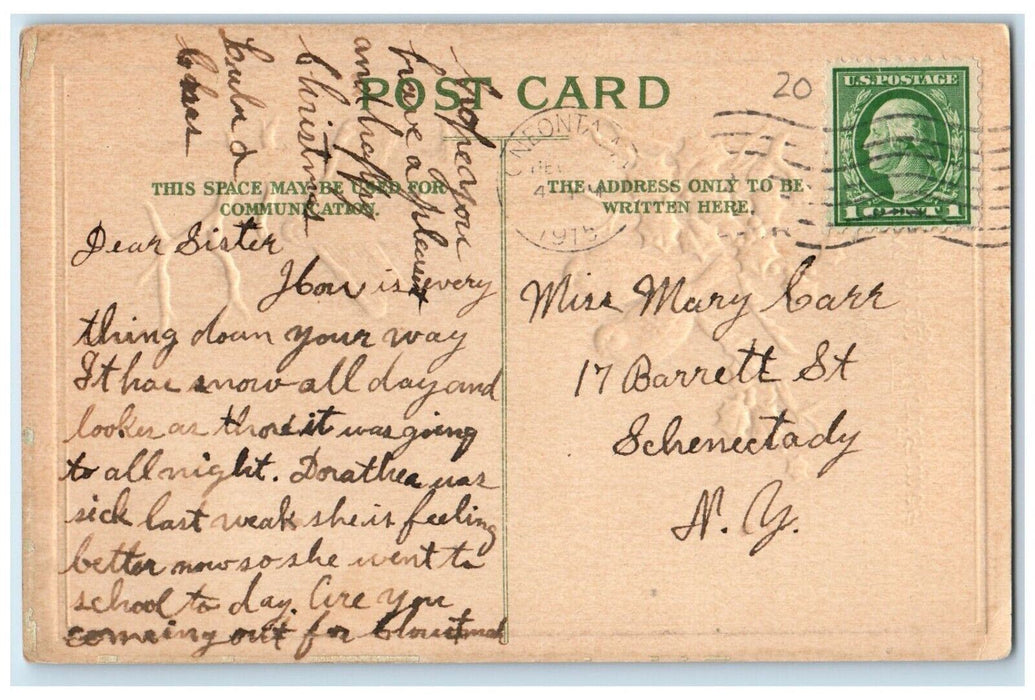 POST CARD
20
U.S. POSTAGE
1 CENT 1
ONEONTA, N.Y.
DEC
4
1915
THIS SPACE MAY BE USED FOR
COMMUNICATION.
THE ADDRESS ONLY TO BE
WRITTEN HERE.
Dear Sister
How is every
thing down your way
It has snow all day and
lookes as tho it was going
to all night. Dorathea was
sick last weak she is feeling
better now so she went to
school to day. Are you
comeing out for
hope you
have a pleasant
and happy
Christmas
Miss Mary Carr
17 Barrett St
Schenectady
N. Y.